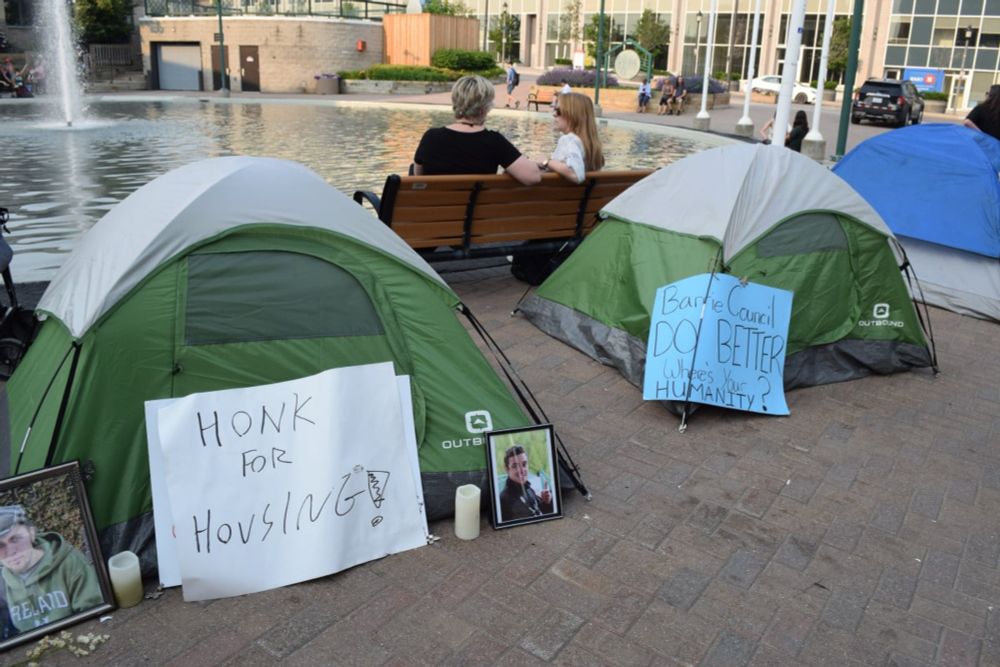 HONK
FOR
HOUSING!
OUTBOUND
Barrie Council
DO BETTER
Where's Your
HUMANITY?
OUTBOUND